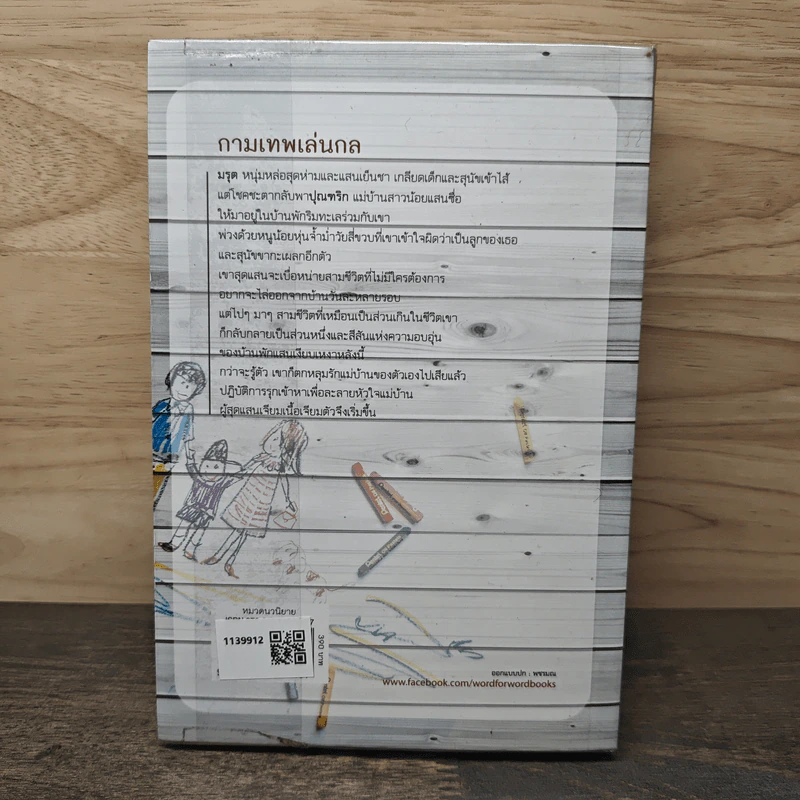 กามเทพเล่นกล
มรุต หนุ่มหล่อสุดห่ามและแสนเย็นชา เกลียดเด็กและสุนัขเข้าไส้
แต่โชคชะตากลับพาปุณฑริก แม่บ้านสาวน้อยแสนซื่อ
ให้มาอยู่ในบ้านพักริมทะเลร่วมกับเขา
พ่วงด้วยหนูน้อยหุ่นจ้ำม่ำวัยสี่ขวบที่เขาเข้าใจผิดว่าเป็นลูกของเธอ
และสุนัขขากะเผลกอีกตัว
เขาสุดแสนจะเบื่อหน่ายสามชีวิตที่ไม่มีใครต้องการ
อยากจะไล่ออกจากบ้านวันละหลายรอบ
แต่ไปๆ มาๆ สามชีวิตที่เหมือนเป็นส่วนเกินในชีวิตเขา
ก็กลับกลายเป็นส่วนหนึ่งและสีสันแห่งความอบอุ่น
ของบ้านพักแสนเงียบเหงาหลังนี้
กว่าจะรู้ตัว เขาก็ตกหลุมรักแม่บ้านของตัวเองไปเสียแล้ว
ปฏิบัติการรุกเข้าหาเพื่อละลายหัวใจแม่บ้าน
ผู้สุดแสนเจียมเนื้อเจียมตัวจึงเริ่มขึ้น
หมวดนวนิยาย
1139912
390 บาท
ออกแบบปก : พชรมณ
www.facebook.com/wordforwordbooks